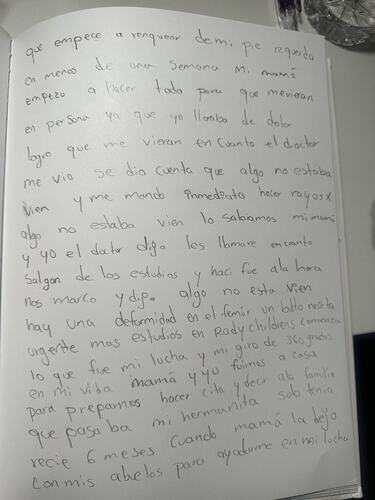 que empece a renquear de mi pie izquerdo
en menos de una semana mi mamá
empezo a hacer todo para que mevieran
en persona ya que yo lloraba de dolor
logro que me vieran en cuanto el doctor
me vio se dio cuenta que algo no estaba
vien y me mando inmediato hacer rayos x
algo no estaba vien lo sabiamos mi mamá
y yo el doctor dijo les llmare encuanto
salgan de los estudios y haci fue ala hora
nos marco y dijo algo no esta vien
hay una deformidad en el femur un balto necita
urgente mas estudios en Rady childrens comenza
lo que fue mi lucha y mi giro de 360 grados
en mi viba mamá y yo fuimos a casa
para preparnos hacer cita y decir ala familia
que pasa ba mi hermanita sob tenia
recie 6 meses cuando mamá la dejo
con mis abuelos para ayudarme en mi lucha